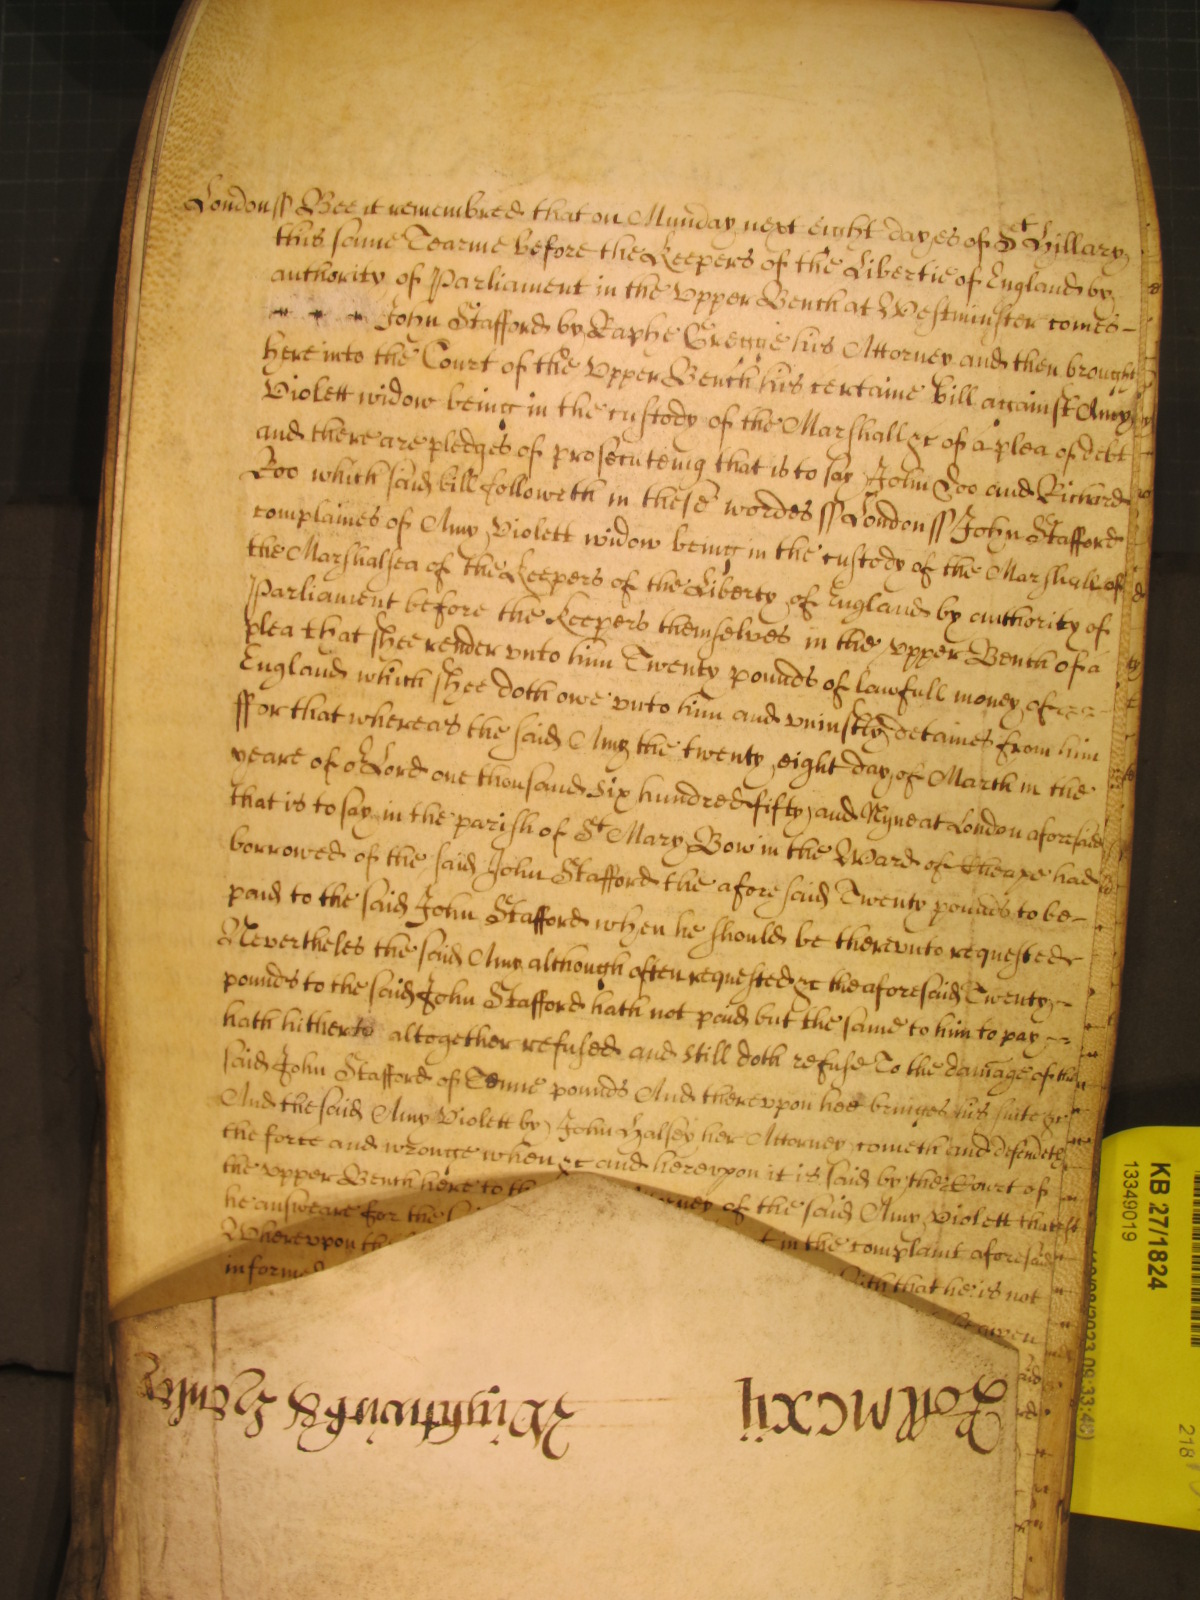 London ss Bee it remembred that on Munday next eight dayes of St Hillary
this same Tearme before the Keepers of the Libertie of England by
authority of Parliament in the Vpper Bench at Westminster comes
John Stafford by Raphe Greggie his Attorney and then brought
here into the Court of the Vpper Bench his certaine bill against Amy
Violett widow being in the custody of the Marshall &c of a plea of debt
and there are pledges of prosecuteing that is to say John Doo and Richard
Roo which said bill followeth in these wordes ss London ss John Stafford
complaines of Amy Violett widow being in the custody of the Marshall of
the Marshalsea of the Keepers of the Liberty of England by authority of
Parliament before the Keepers themselves in the vpper Bench of a
plea that shee render vnto him Twenty pounds of lawfull money of
England which shee doth owe vnto him and vniustly detaines from him
ffor that whereas the said Amy the twenty eight day of March in the
yeare of or Lord one thousand six hundred fifty and Nyne at London aforesaid
that is to say in the parish of St Mary Bow in the Ward of Cheape had
borrowed of the said John Stafford the aforesaid Twenty pounds to be
paid to the said John Stafford when he should be therevnto requested
Nevertheles the said Amy although often requested &c the aforesaid Twenty
pounds to the said John Stafford hath not paid but the same to him to pay
hath hitherto altogether refused and still doth refuse To the damage of the
said John Stafford of Tenne pounds And therevpon hee bringes his suite &c
And the said Amy Violett by John Halsey her Attorney cometh and defendeth
the force and wronge when &c and herevpon it is said by the Court of
the vpper Bench here to the of the said Amy Violett that
he answeare for the in the complaint aforesaid
Wherevpon th that he is not
informed
Roll mcxij Wightwick &
KB 27/1824
13349019
2023 09:33:48
218